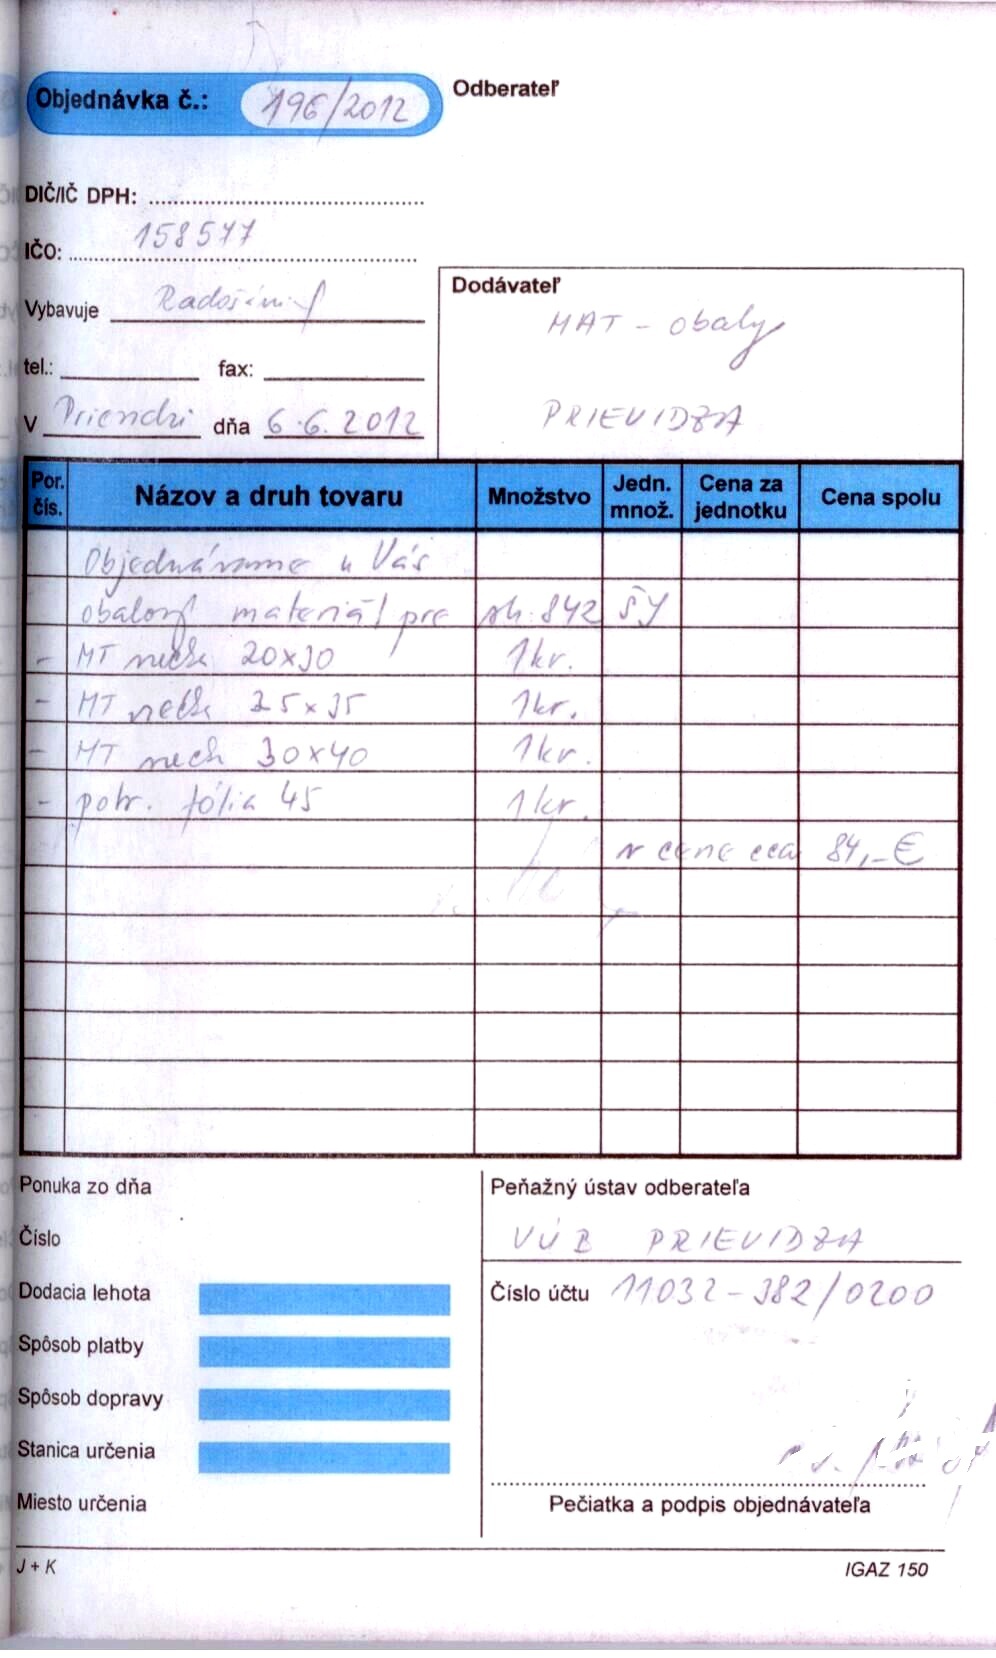 Objednávka č.: 196/2012
Odberateľ
DIČ/IČ DPH:
IČO: 158577
Vybavuje
tel.: fax:
V dňa 6.6.2012
Dodávateľ
MAT - obaly
PRIEVIDZA
Por. čís. Názov a druh tovaru Množstvo Jedn. množ. Cena za jednotku Cena spolu
Objednávame u Vás
obalový materiál pre 842 ŠJ
- MT 20x30 1kr.
- MT 25x35 1kr.
- MT 30x40 1kr.
- potr. fólia 45 1kr.
v cene cca 84,-€
Ponuka zo dňa
Číslo
Dodacia lehota
Spôsob platby
Spôsob dopravy
Stanica určenia
Miesto určenia
Peňažný ústav odberateľa
VÚB PRIEVIDZA
Číslo účtu 11032-382/0200
Pečiatka a podpis objednávateľa
J + K
IGAZ 150